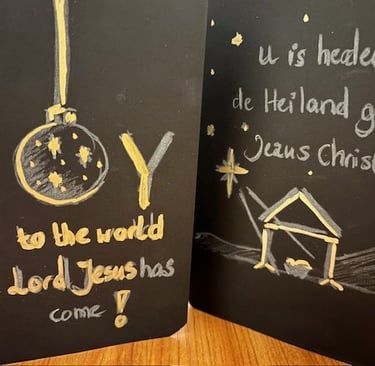 OY
to the world
Lord Jesus has
come !
u is hede
de Heiland g
Jezus Christ